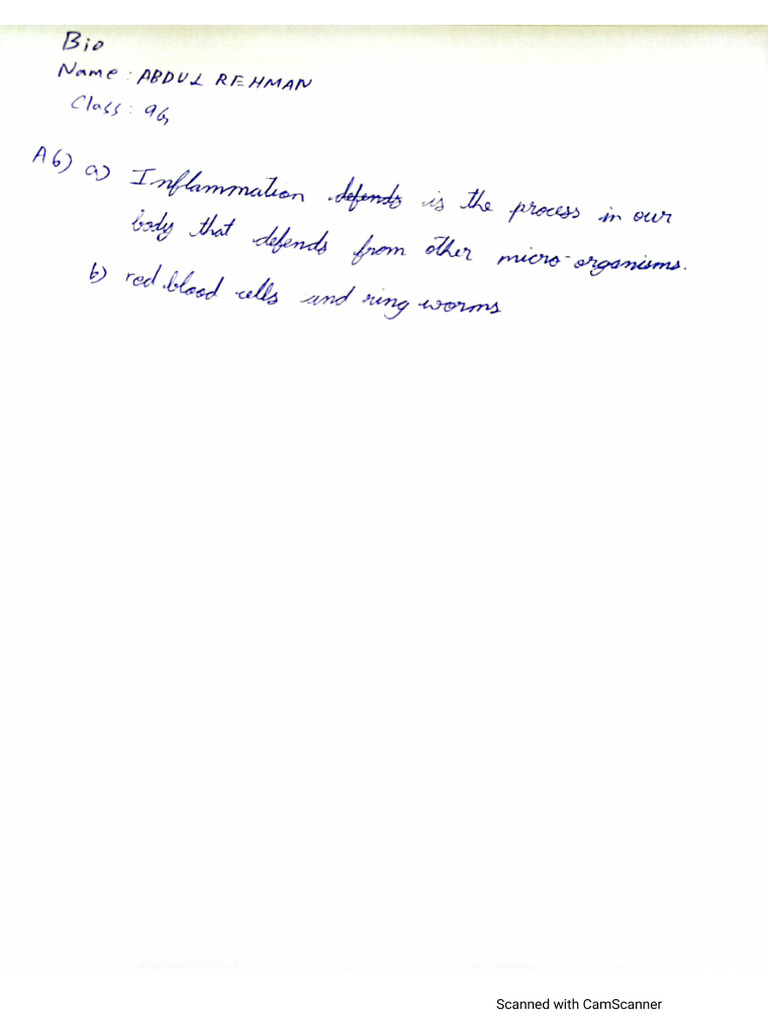 Bio
Name : ABDUL REHMAN
Class : 9G
A6) a) Inflammation defends is the process in our
body that defends from other micro-organisms.
b) red blood cells and ring worms
Scanned with CamScanner